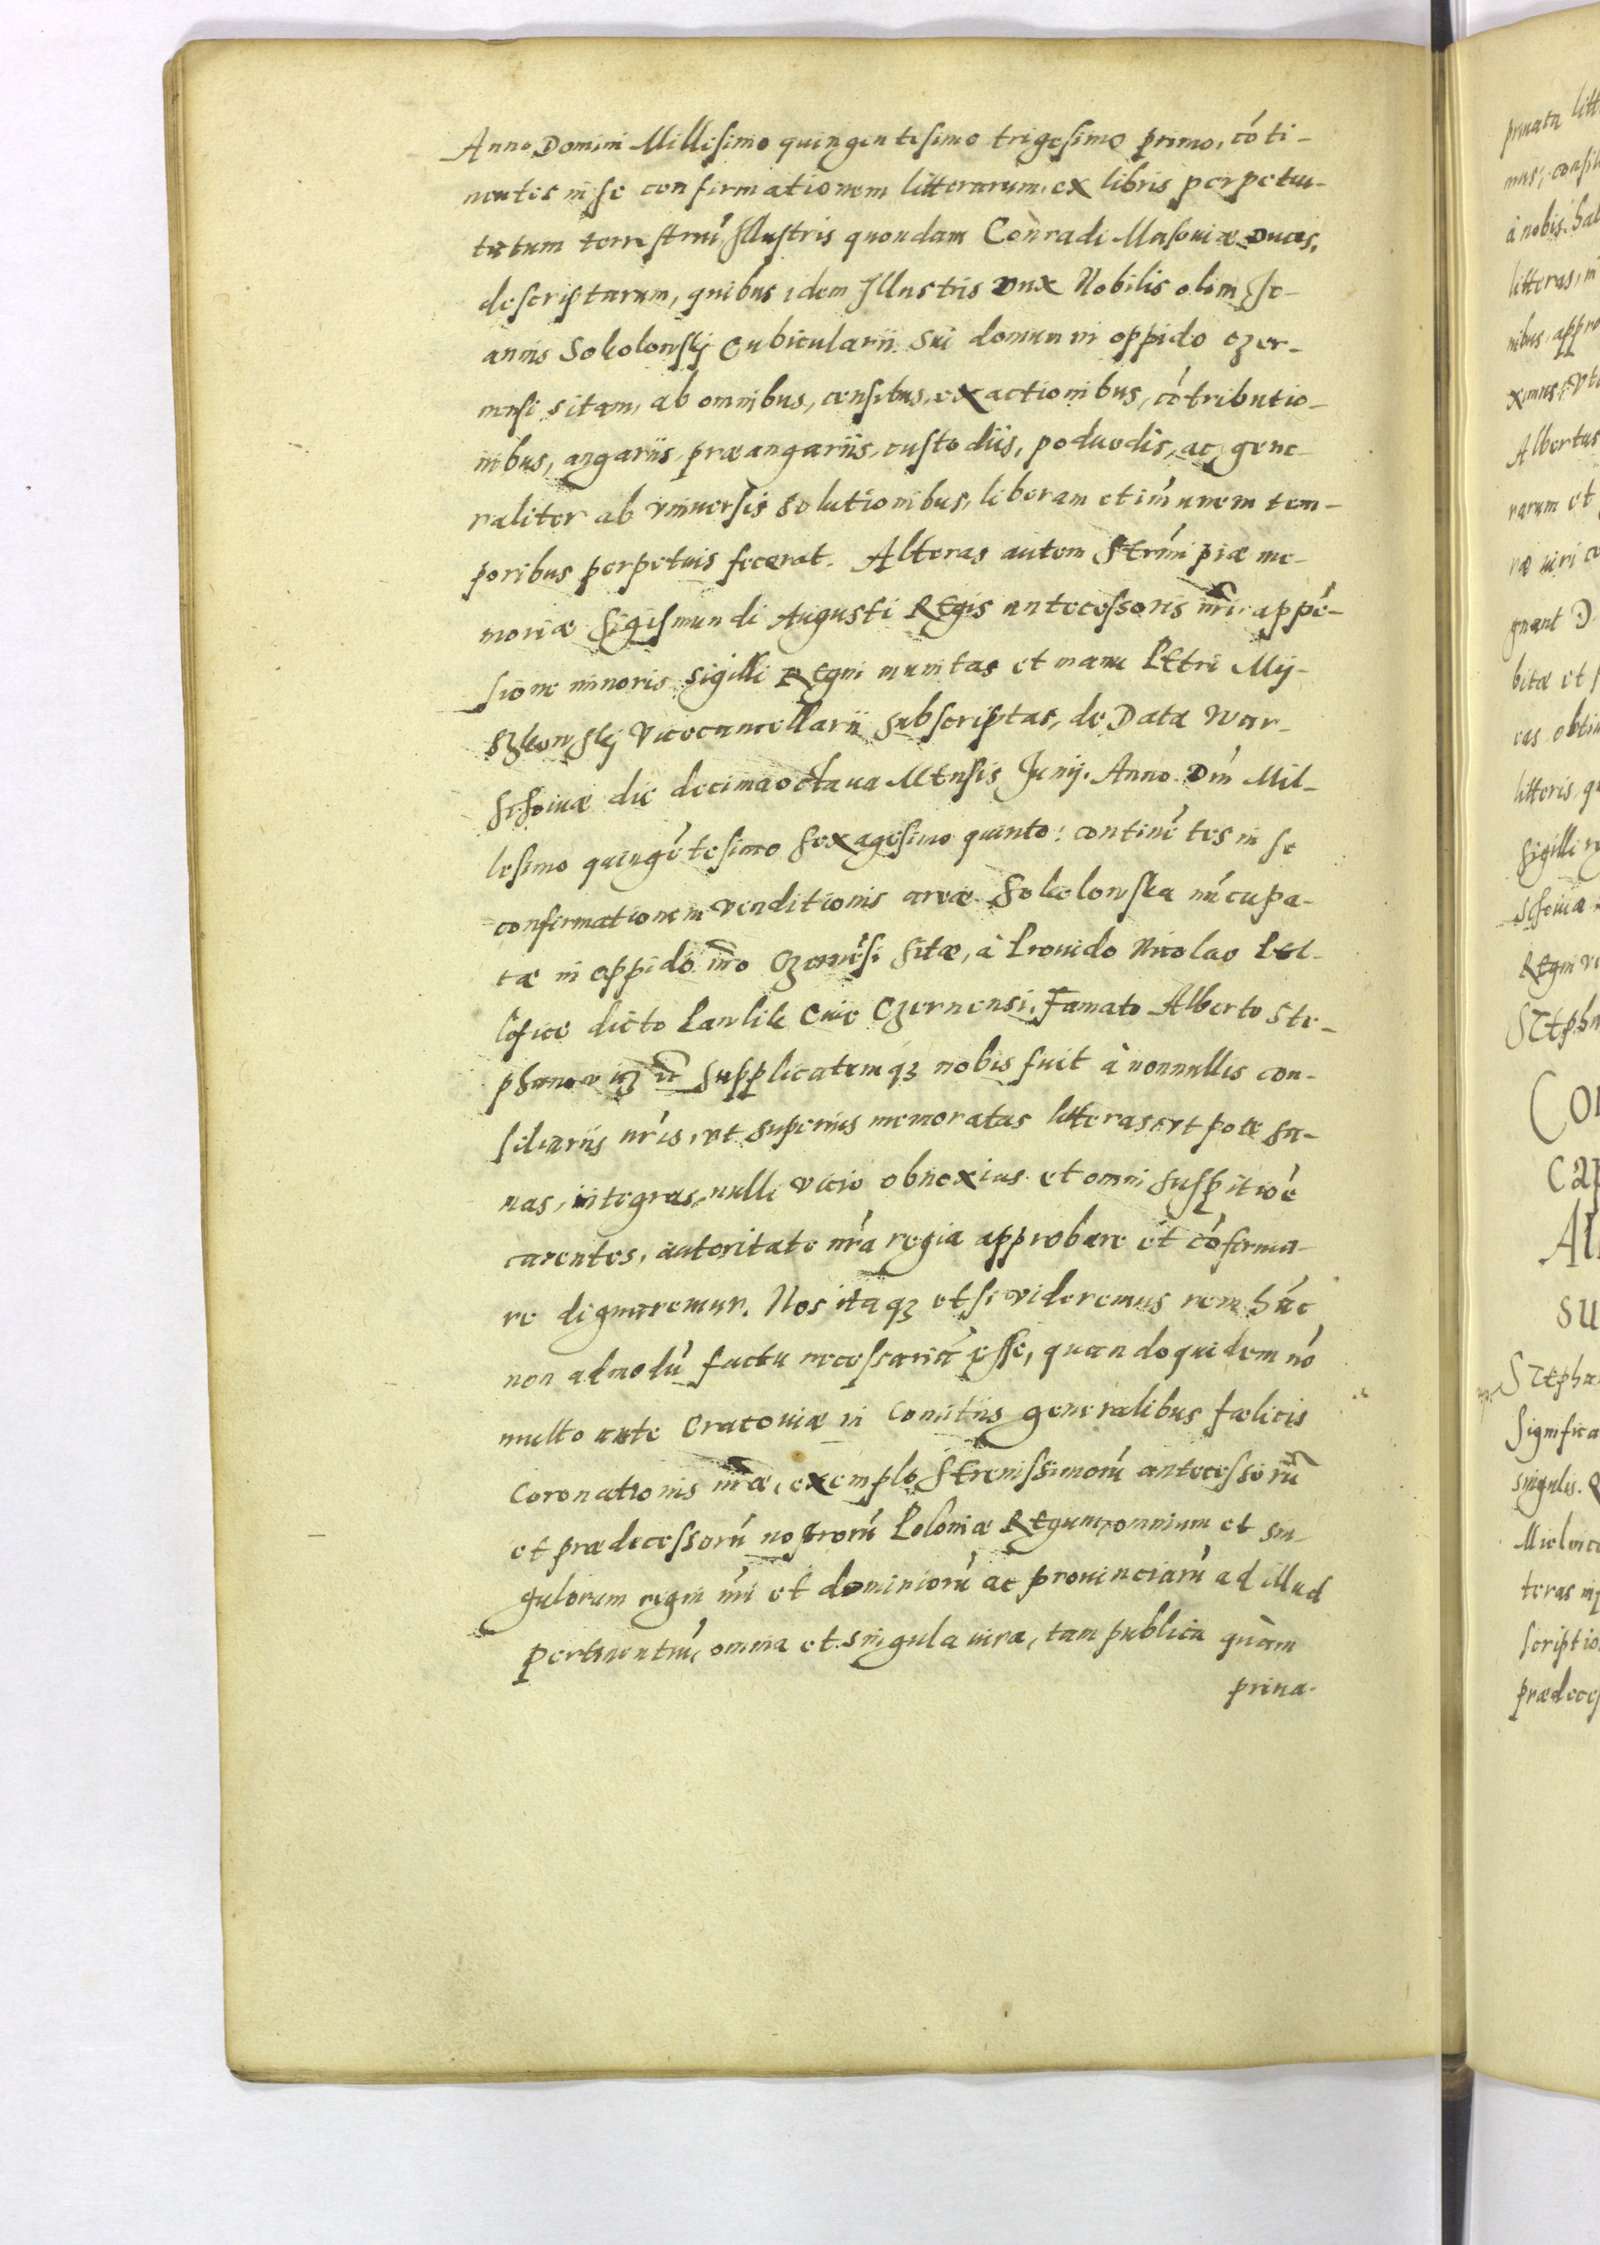 Anno Domini Millesimo quingentesimo trigesimo primo, cóti-
nentes in se confirmationem litterarum, ex libris perpetui-
tatum terrestriú Illustris quondam Conradi Masouiæ Ducis,
descriptarum, quibus idem Illustris Dux Nobilis olim Jo-
annis Sokolowskj Cubicularii sui domum in oppido Czer-
nensi sitam, ab omnibus, censibus, exactionibus, cótributio-
nibus, angariis, præangariis, custodiis, poduodis, ac gene-
raliter ab vniuersis solutionibus, liberam et imúnem tem-
poribus perpetuis fecerat. Alteras autem Sermi piæ me-
moriæ Sigismundi Augusti Regis antecessoris nri, appé-
sione minoris sigilli Regni munitas et manu Petri Mij-
szkowskj Vicecancellarii subscriptas, de Data War-
schouiæ die decimaoctaua Mensis Junij. Anno Dni Mil-
lesimo quingétesimo sexagesimo quinto: continétes in se
confirmationem venditionis areæ Sokolowska núcupa-
tæ in oppido nro Czernési sitæ, à Prouido Nicolao Pel-
lifice dicto Pawlik Ciue Czernensi, Famato Alberto Ste-
phanow
supplicatumqz nobis fuit à nonnullis con-
siliariis nris, vt superius memoratas litteras vt pote sa-
nas, integras, nulli vicio obnoxias et omni suspitioé
carentes, autoritate nra regia approbare et cófirma-
re dignaremur. Nos itaqz etsi videremus rem hác
non admodú factu necessariá esse, quandoquidem nó
multo ante Cracouiæ in Comitiis generalibus fælicis
Coronationis nræ, exemplo Serenissimorú antecessorú
et prædecessorú nostrorú Poloniæ Regum, omnium et sin-
gulorum regni nri et dominiorú ac prouinciarú ad illud
pertinentiú, omnia et singula iura, tam publica quàm
priua-
priuata litt
à nobis
litteras, in
nibus, appro
Albertus
rarum et
gnant D
bitæ et
cas obtin
litteris, qu
Sigilli
schouiæ
Regni
Steph
Con
cap
Al
su
Stepha
Significa
singulis.
teras
scriptio
prædeces